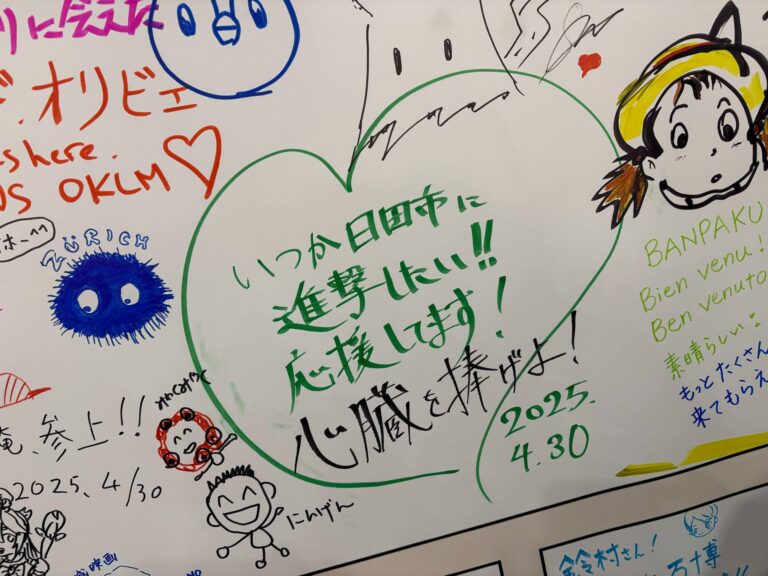 りに会えた
オリビエ
here.
OKLM
ZÜRICH
いつか日田市に
進撃したい!!
応援してます!
心臓を捧げよ!
2025.
4.30
BANPAKU
Bien venu!
Ben venuto
素晴らしい
もっとたくさん
来てもらえ
みゃくみゃく
俺、参上!!
2025.4/30
にんげん
映画
鈴村さん!
万博